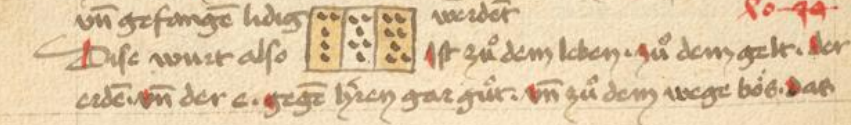 vn̄ gefangē lidig werdēt
Dise wurt also Ist zů dem leben. zů dem gelt. der
erdē. vn̄ der e. gegē h̄ren gar gůt. vn̄ zů dem wege bo̊s. das